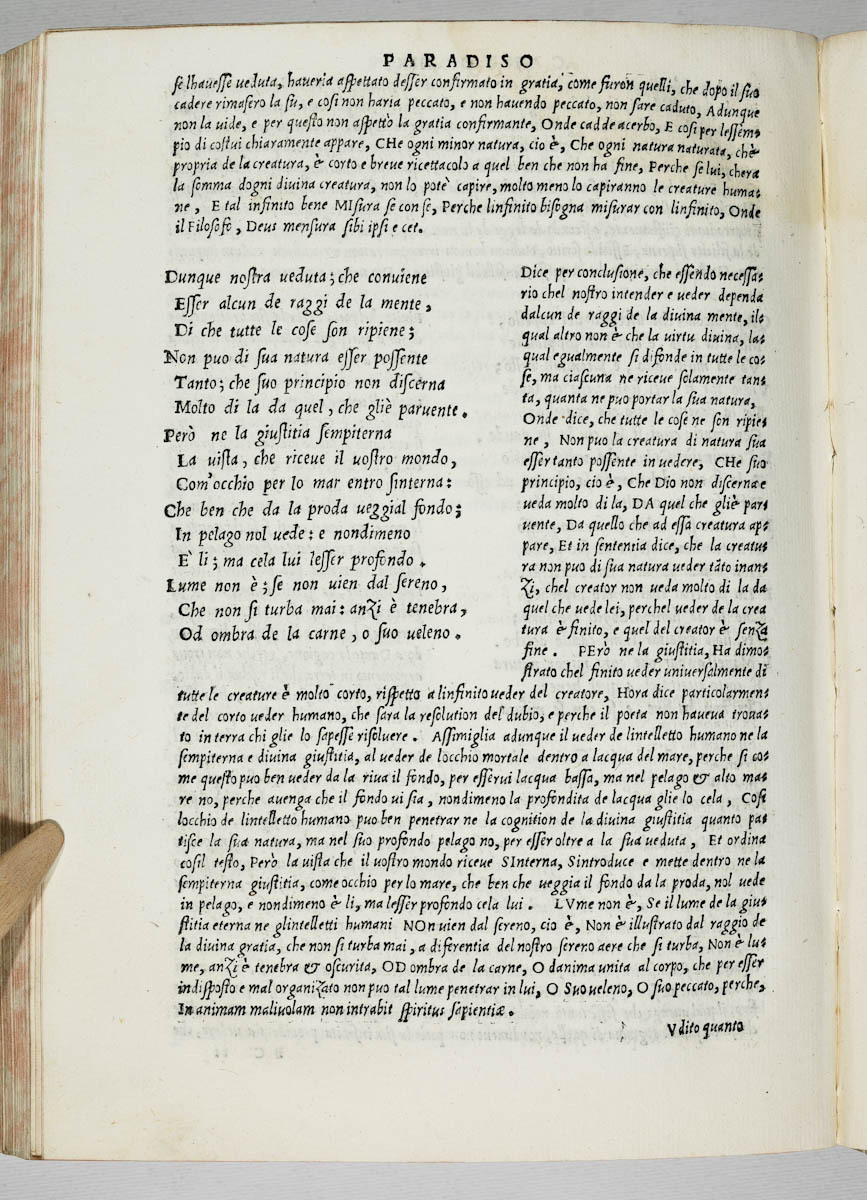 PARADISO
se lhauesse ueduta, haueria aspettato desser confirmato in gratia, come furon quelli, che dopo il suo
cadere rimasero la su, e cosi non haria peccato, e non hauendo peccato, non sare caduto, Adunque
non la uide, e per questo non aspettò la gratia confirmante, Onde cadde acerbo, E cosi per lessem-
pio di costui chiaramente appare, CHe ogni minor natura, cio è, Che ogni natura naturata, chè
propria de la creatura, è corto e breue ricettacolo a quel ben che non ha fine, Perche se lui, chera
la somma dogni diuina creatura, non lo potè capire, molto meno lo capiranno le creature huma-
ne, E tal infinito bene MIsura se con se, Perche linfinito bisogna misurar con linfinito, Onde
il Filosofo, Deus mensura sibi ipsi e cet.
Dunque nostra ueduta; che conuiene
Esser alcun de raggi de la mente,
Di che tutte le cose son ripiene;
Non puo di sua natura esser possente
Tanto; che suo principio non discerna
Molto di la da quel, che gliè paruente.
Però ne la giustitia sempiterna
La uista, che riceue il uostro mondo,
Com'occhio per lo mar entro sinterna:
Che ben che da la proda ueggial fondo;
In pelago nol uede: e nondimeno
E' li; ma cela lui lesser profondo.
Lume non è; se non uien dal sereno,
Che non si turba mai: anzi è tenebra,
Od ombra de la carne, o suo ueleno.
Dice per conclusione, che essendo necessa-
rio chel nostro intender e ueder dependa
dalcun de raggi de la diuina mente, il-
qual altro non è che la uirtu diuina, la-
qual egualmente si difonde in tutte le co-
se, ma ciascuna ne riceue solamente tan-
ta, quanta ne puo portar la sua natura,
Onde dice, che tutte le cose ne son ripie-
ne, Non puo la creatura di natura sua
esser tanto possente in uedere, CHe suo
principio, cio è, Che Dio non discerna e
ueda molto di la, DA quel che gliè par-
uente, Da quello che ad essa creatura ap-
pare, Et in sententia dice, che la creatu-
ra non puo di sua natura ueder tãto inan-
zi, chel creator non ueda molto di la da
quel che uede lei, perchel ueder de la crea
tura è finito, e quel del creator è senza
fine. PErò ne la giustitia, Ha dimo-
strato chel finito ueder uniuersalmente di
tutte le creature è molto corto, rispetto a linfinito ueder del creatore, Hora dice particolarmen-
te del corto ueder humano, che sara la resolution del dubio, e perche il poeta non haueua troua-
to in terra chi glie lo sapesse risoluere. Assimiglia adunque il ueder de lintelletto humano ne la
sempiterna e diuina giustitia, al ueder de locchio mortale dentro a lacqua del mare, perche si co-
me questo puo ben ueder da la riua il fondo, per esserui lacqua bassa, ma nel pelago & alto ma-
re no, perche auenga che il fondo ui sia, nondimeno la profondita de lacqua glie lo cela, Cosi
locchio de lintelletto humano puo ben penetrar ne la cognition de la diuina giustitia quanto pa-
tisce la sua natura, ma nel suo profondo pelago no, per esser oltre a la sua ueduta, Et ordina
cosil testo, Però la uista che il uostro mondo riceue SInterna, Sintroduce e mette dentro ne la
sempiterna giustitia, come occhio per lo mare, che ben che ueggia il fondo da la proda, nol uede
in pelago, e nondimeno è li, ma lesser profondo cela lui. LVme non è, Se il lume de la giu-
stitia eterna ne glintelletti humani NOn uien dal sereno, cio è, Non è illustrato dal raggio de
la diuina gratia, che non si turba mai, a differentia del nostro sereno aere che si turba, Non è lu-
me, anzi è tenebra & oscurita, OD ombra de la carne, O danima unita al corpo, che per esser
indisposto e mal organizato non puo tal lume penetrar in lui, O Suo ueleno, O suo peccato, perche,
In animam maliuolam non intrabit spiritus sapientiæ.
Vdito quanto